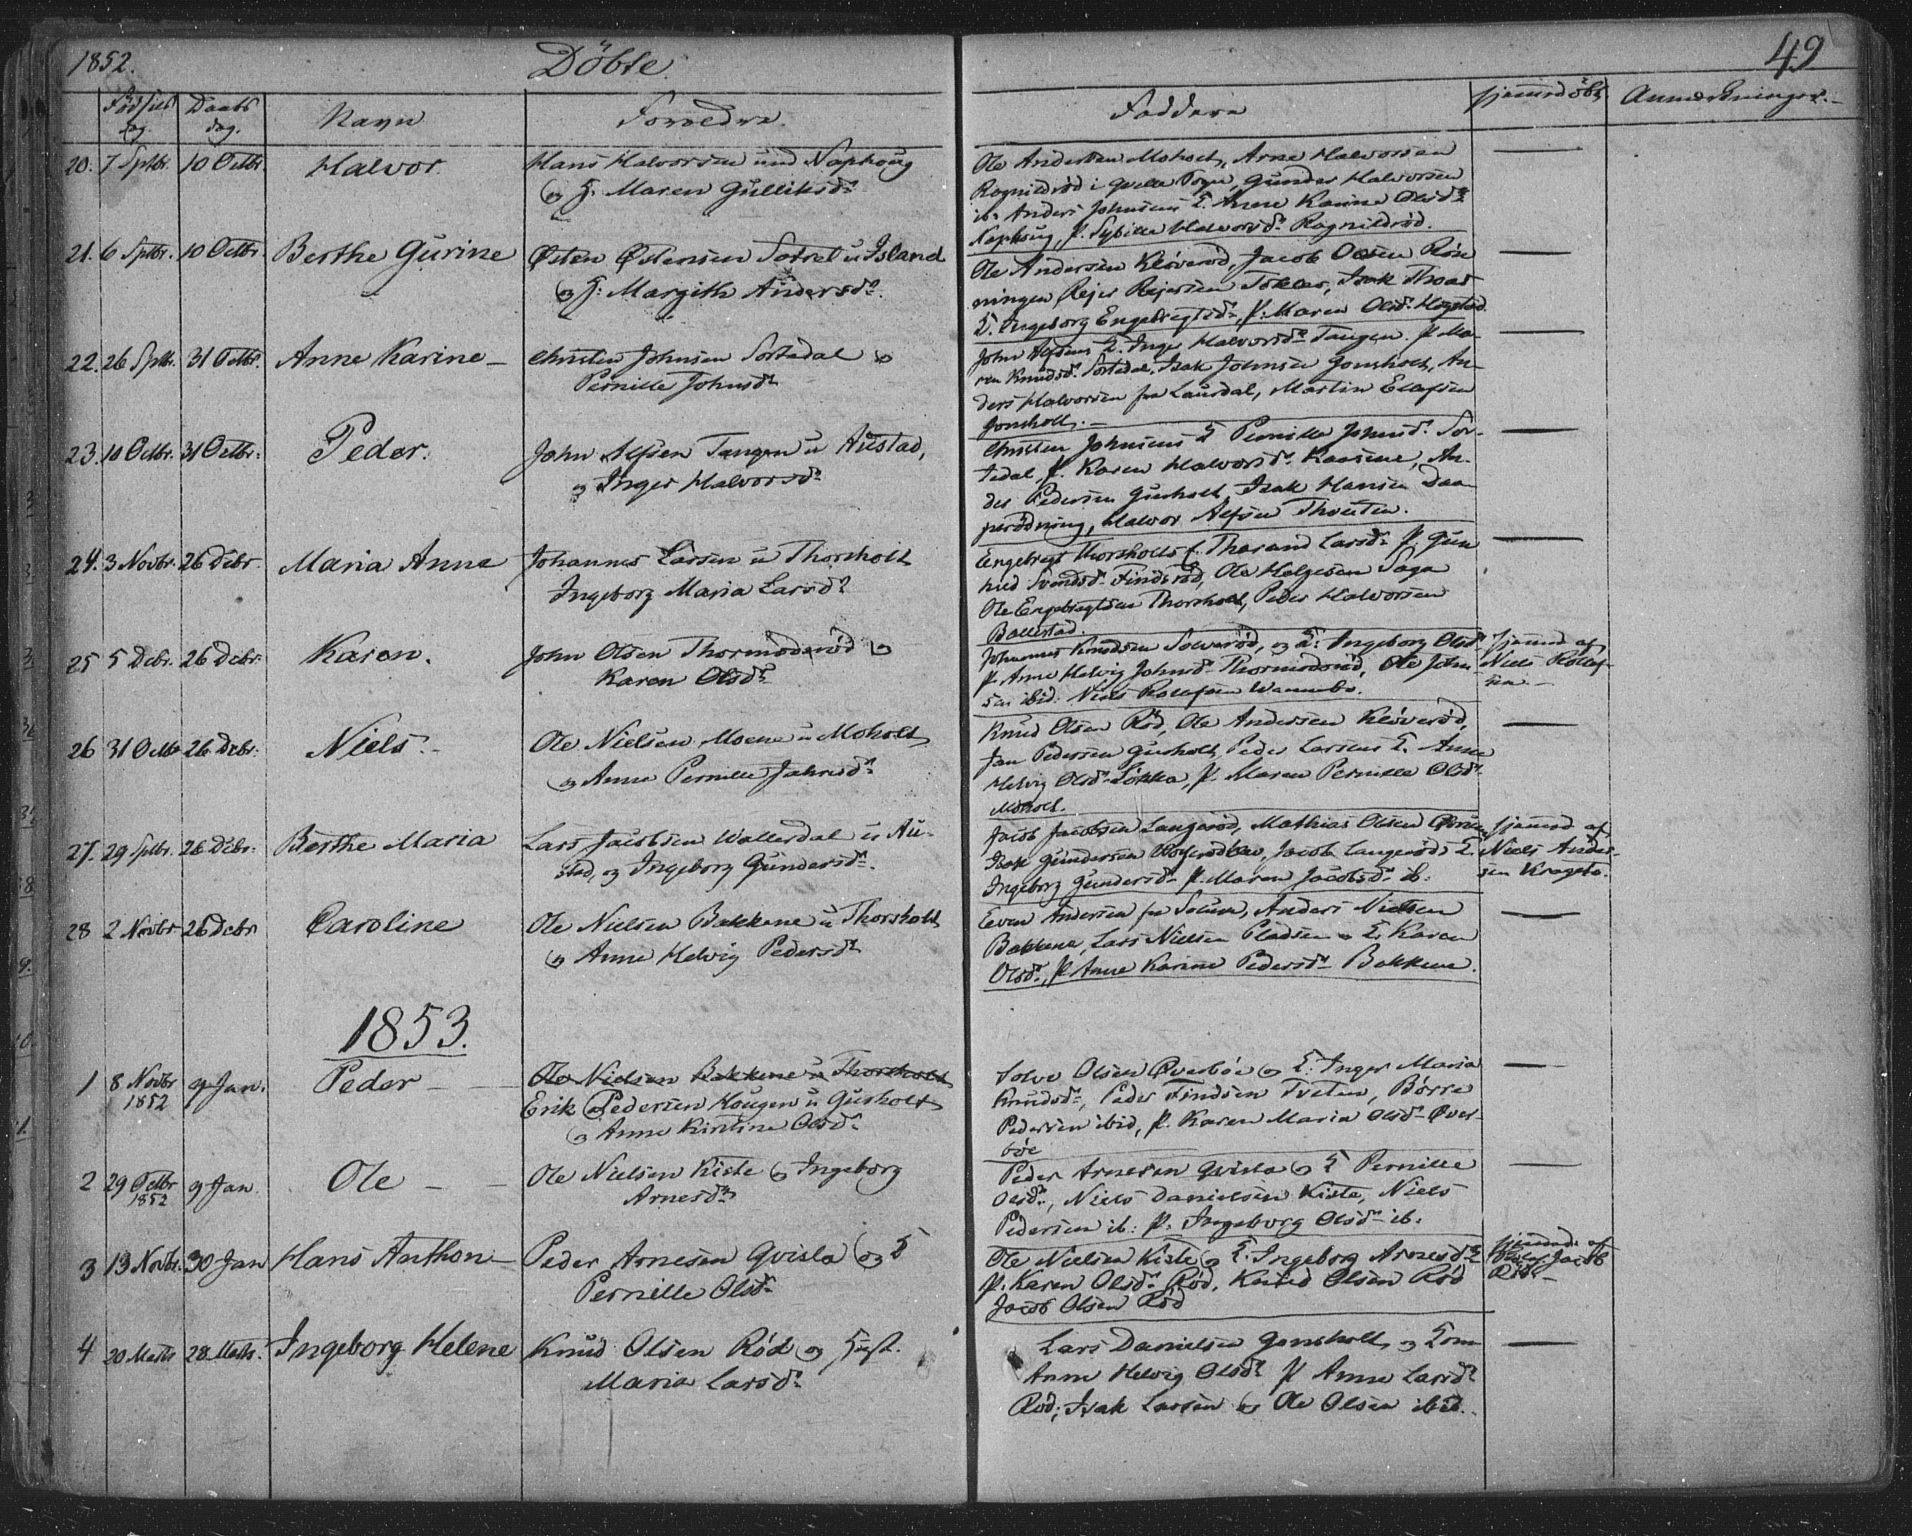 1852.
Döbte.
49
Födsels dag.
Daabs dag.
Navn
Forældre.
Faddere
hjemmedöbt
Anmærkninger.
20. 7 Sptbr. 10 Octbr. Halvor.
Hans Halvorsen und Naphoug
og H. Maren Gulliksd.
Ole Andersen Moholt, Arne Halvorsen
Rognildrød i Sogn, Gunder Halvorsen
ib. Anders Johnsens E. Anne Karine Olsd.
Naphoug, P. Sybille Halvorsd. Rognildrød.
21. 6 Sptbr. 10 Octbr. Berthe Gurine
Østen Østensen u Island
og H. Margith Andersd.
Ole Andersen Kløverød, Jacob Olsen Røn
ningen Rejer Rejersen Isak Thoas
E. Ingeborg Engebregtsd., P. Maren Olsd. Hogstad.
22. 26 Sptbr. 31 Octbr. Anne Karine
Christen Johnsen Sortedal og
Pernille Johnsd.
John Alfsens E. Inger Halvorsd. Tangen. P. Ma-
ren Knudsd. Sortedal, Isak Johnsen Gonsholt, An-
ders Halvorsen fra Laurdal, Martin Elefsen
Gonsholt.
23. 10 Octbr. 31 Octbr. Peder.
John Alfsen Tangen u Austad,
og Inger Halvorsd.
Christen Johnsens E Pernille Johnsd. Sor-
tedal P. Karen Halvorsd. Kaasene, An-
ders Pedersen Gusholt, Isak Hansen Daa
Halvor Alfsen
24. 3 Novbr. 26 Debr. Maria Anne
Johannes Larsen u Thorsholt
Ingeborg Maria Larsd.
Engebregt Thorsholts E. Tharand Larsd. P. Gun
hild Svendsd. Finderød, Ole Helgesen Saga
Ole Engebregtsen Thorsholt, Peder Halvorsen
Ballestad.
25 5 Debr. 26 Debr. Karen.
John Olsen Thormodsrød og
Karen Olsd.
Johannes Knudsen Solverød, og E: Ingeborg Olsd.
P. Anne Helvig Johnsd. Thormodsrød, Ole John
sen ibid. Niels Rolefsen
hjemmed. af
Niels Rolef-
sen
26 31 Octbr 26 Debr. Niels.
Ole Nielsen Moene u Moholt
og Anne Pernille Johnsd.
Knud Olsen Rød, Ole Andersen Kløverød,
Jan Pedersen Gusholt, Peder Larsens E. Anne
Helvig Olsd. Løkka, P. Maren Pernille Olsd.
Moholt.
27. 29 Sptbr. 26 Debr. Berthe Maria
Lars Jacobsen Wallerdal u Au-
stad, og Ingeborg Gundersd.
Jacob Jacobsen Langerød, Mathias Olsen
Isak Gundersen Jacob Langerøds E.
Ingeborg Gundersd. P. Maren Jacobsd. ib.
hjemmed. af
Niels Ander-
sen Kragsbo.
28 2 Novbr 26 Debr Caroline
Ole Nielsen Bakkene u Thorsholt
og Anne Helvig Pedersd.
Even Andersen fra Solum, Anders Nielsen
Bakkene, Lars Nielsen Pladsen og E. Karen
Olsd., P. Anne Karine Pedersd. Bakkene.
1853.
1 8 Novbr 1852 9 Jan. Peder
Ole Nielsen Bakkene u Thorsholt
Erik Pedersen Hougen u Gusholt
og Anne Kirstine Olsd.
Solve Olsen Øverbøe og E: Inger Maria
Knudsd., Peder Findsen Tveten, Børre
Pedersen ibid, P. Karen Maria Olsd. Øver
bøe
2 29 Octbr 1852 9 Jan Ole
Ole Nielsen Kiste og Ingeborg
Arnesd.
Peder Arnesen Gvisla og E Pernille
Olsd., Niels Danielsen Kiste, Niels
Pedersen ib: P. Ingeborg Olsd. ib.
3 13 Novbr. 30 Jan Hans Anthon
Peder Arnesen Gvisla og E
Pernille Olsd.
Ole Nielsen Kiste og E. Ingeborg Arnesd.
P. Karen Olsd. Rød, Knud Olsen Rød
Jacob Olsen Rød
hjemmed. af
Jacob
Rød
4 20 Marts 28 Marts. Ingeborg Helene
Knud Olsen Rød og Hust.
Maria Larsd.
Lars Danielsen Gonsholt og Kone
Anne Helvig Olsd. P Anne Larsd.
Rød, Isak Larsen og Ole Olsen ibid.